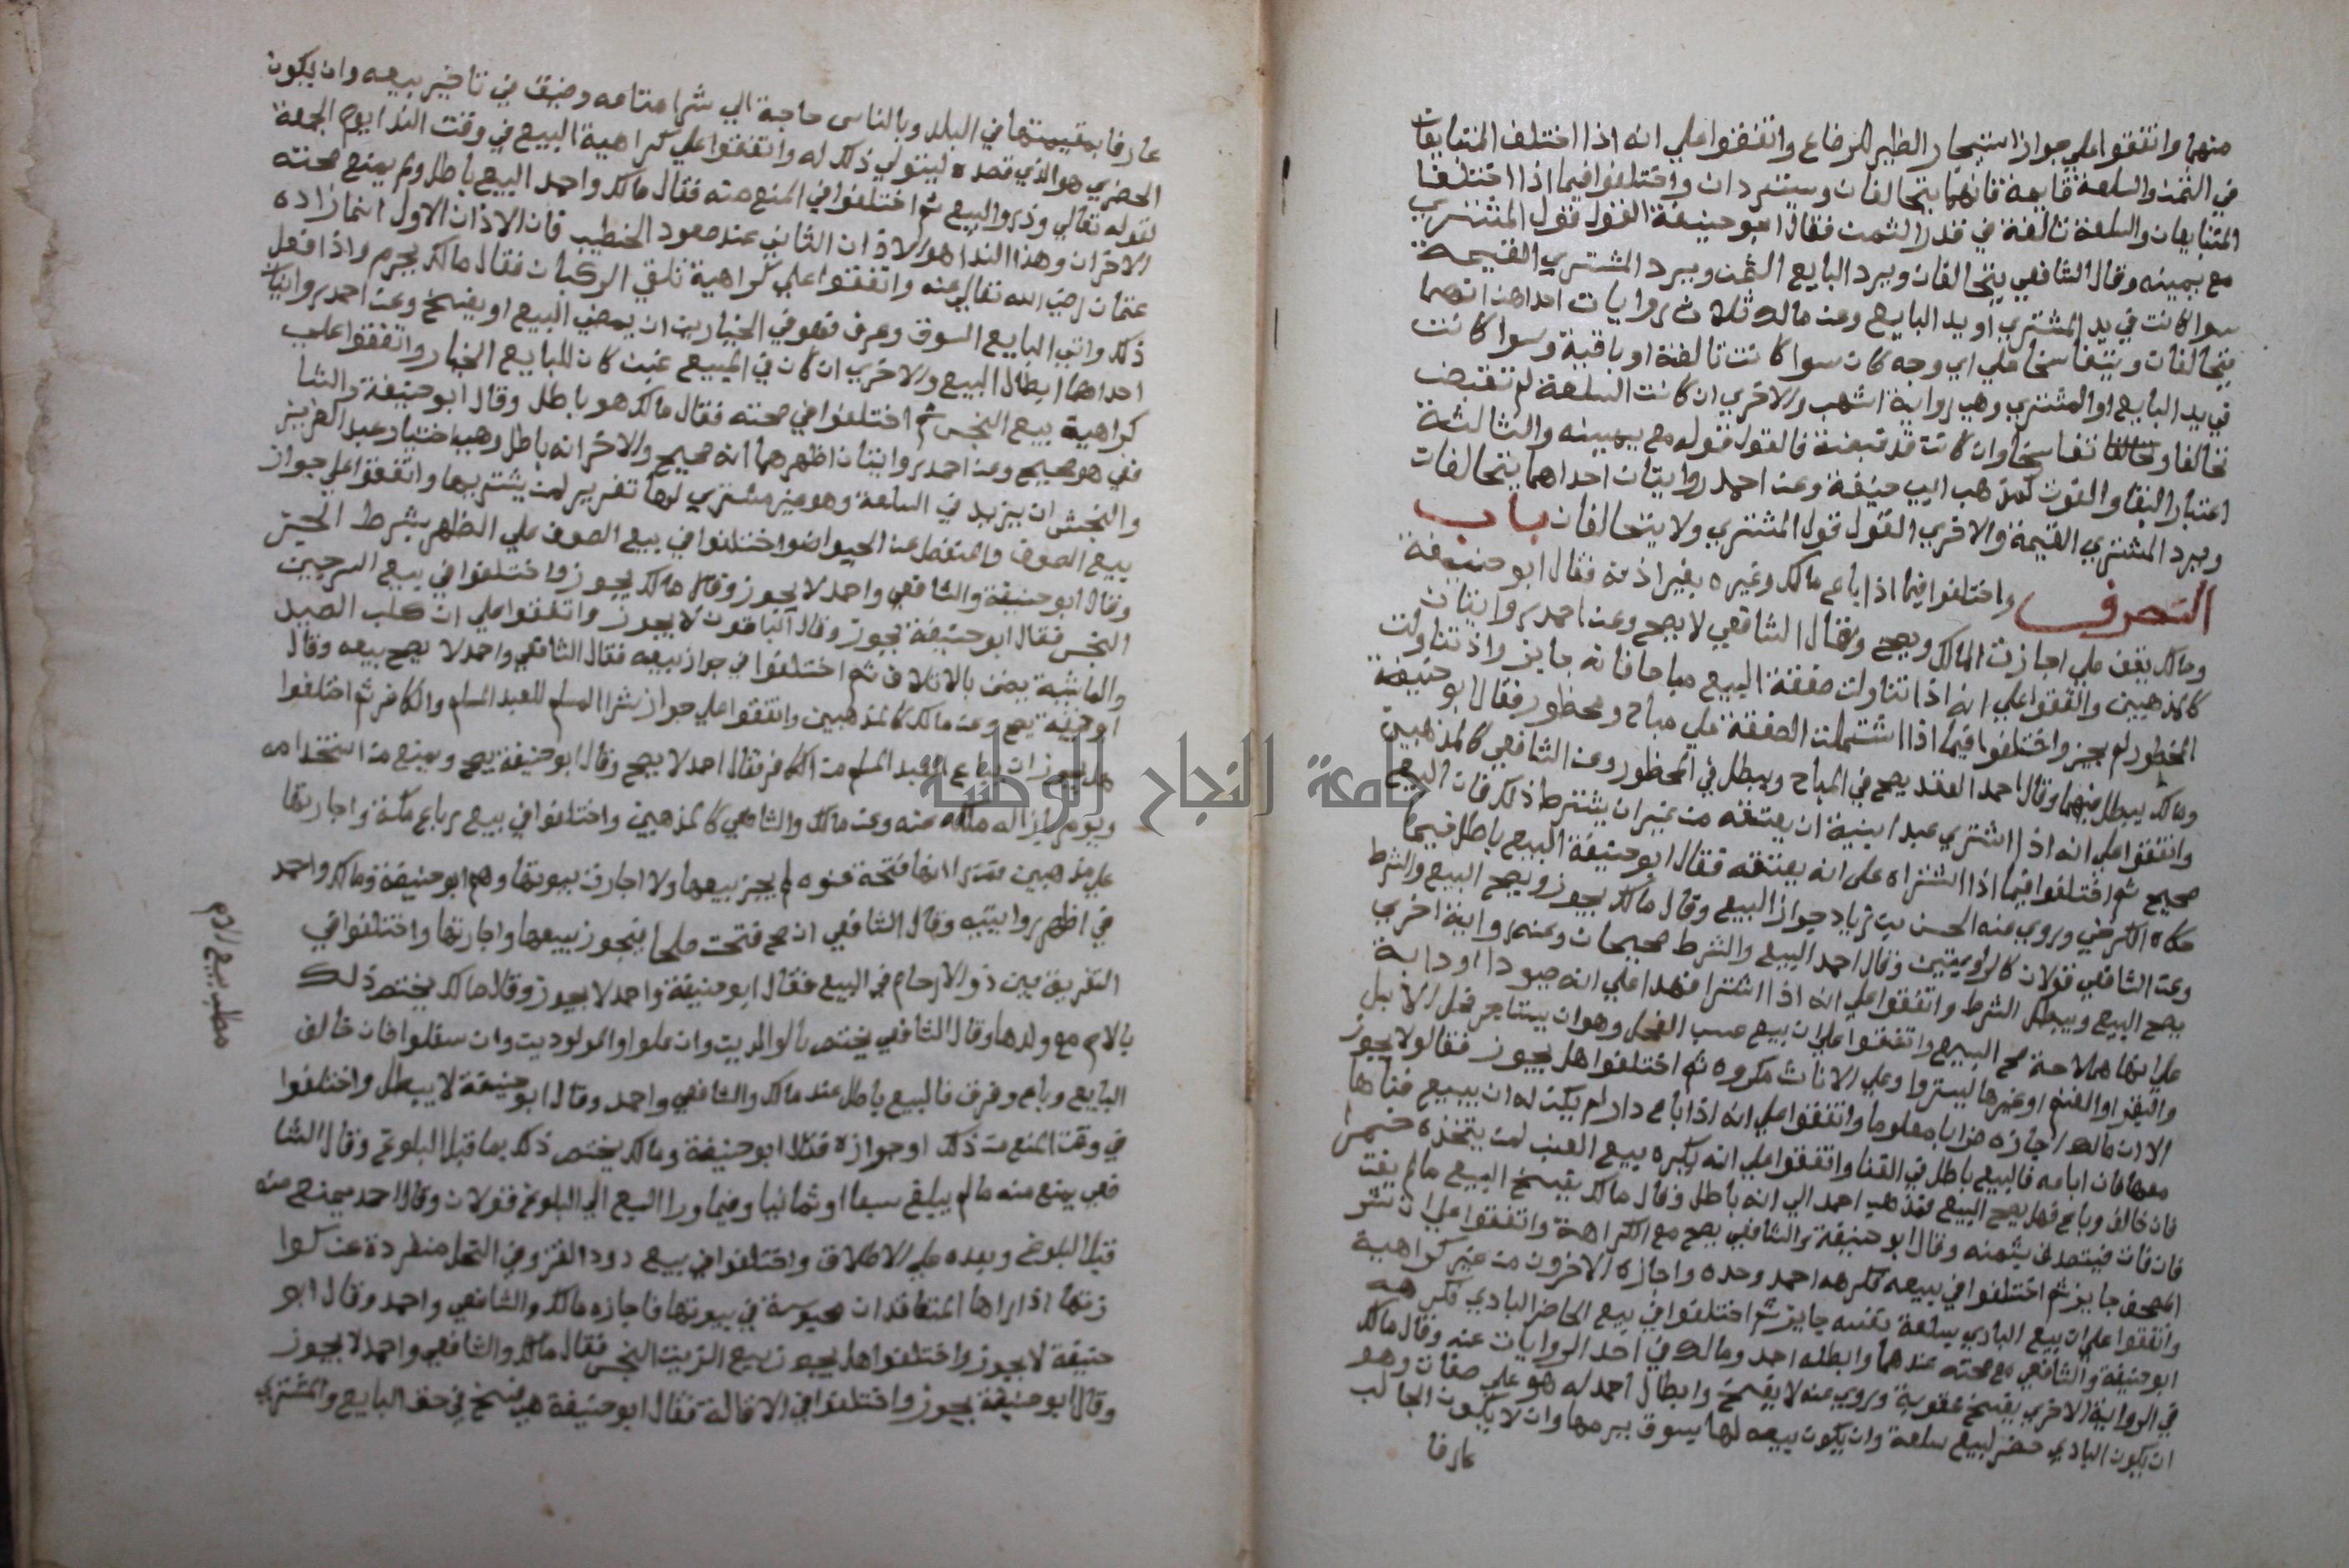 منهما واتفقوا علي جواز استيجار الظير للرضاع واتفقوا علي انه اذا اختلف المتبايعان
في الثمن والسلعة قايمة فانهما يتحالفان ويستردان واختلفوا فيما اذا اختلفا
المتبايعان والسلعة تالفة في قدر الثمن فقال ابو حنيفة القول قول المشتري
مع يمينه وقال الشافعي يتحالفان ويرد البايع الثمن ويرد المشتري القيمة
سوا كانت في يد المشتري او يد البايع وعن مالك ثلاث روايات احداهن انهما
يتحالفان ويتفاسخا علي اي وجه كان سوا كانت تالفة او باقية وسوا كانت
في يد البايع او المشتري وهي رواية اشهب والاخري ان كانت السلعة لم تقبض
تحالفا وتفاسخا وان كانت قد قبضة فالقول قوله مع يمينه والثالثة
اعتبار البقا والفوت كمذهب ابي حنيفة وعن احمد روايتان احداهما يتحالفان
ويرد المشتري القيمة والاخري القول قول المشتري ولا يتحالفان باب
التصرف واختلفوا فيما اذا باع مالك وغيره بغير اذنه فقال ابو حنيفة
ومالك يقف علي اجازت المالك ويصح وقال الشافعي لا يصح وعن احمد روايتان
كالمذهبين واتفقوا علي انه اذا تناولت صفقة البيع مباحا فانه جايز واذ تناولت
المخطور لم يجز واختلفوا فيما اذا اشتملت الصفقة علي مباح ومحظور فقال ابو حنيفة
ومالك يبطل فيهما وقال احمد العقد يصح في المباح ويبطل في المحظور وعن الشافعي كالمذهبين
واتفقوا علي انه اذا اشتري عبدا بنية ان يعتقه من غير ان يشترط ذلك فان البيع
صحيح ثم اختلفوا فيما اذا اشتراه على انه يعتقه فقال ابو حنيفة البيع باطل فيما
حكاه الكرخي وروي عنه الحسن بن زياد جواز البيع وقال مالك يجوز ويصح البيع والشرط
وعن الشافعي قولان كالروايتين وقال احمد البيع والشرط صحيحان وعنه رواية اخري
يصح البيع ويبطل الشرط واتفقوا علي انه اذا اشترا فهدا علي انه صيودا او دابة
علي انها هملاجة صح البيع واتفقوا علي ان بيع عسب الفحل وهو ان يستاجر فحل الابل
والبقر او الغنم او غيرها لينزوا علي الاناث مكروه ثم اختلفوا هل يجوز فقالو لا يجوز
الا ان مالك اجازه ضرابا معلوما واتفقوا علي انه اذا باع دارا لم يكن له ان يبيع فناها
معها فان ابامه فالبيع باطل في الفنا واتفقوا علي انه يكره بيع العنب لمن يتخذه خمرا
فان خالف وباع فهل يصح البيع فذهب احمد الي انه باطل وقال مالك يفسخ البيع مالم يفت
فان فات فيتصدق بثمنه وقال ابو حنيفة والشافعي يصح مع الكراهة واتفقوا علي ان شر
المصحف جايز ثم اختلفوا في بيعه فكرهه احمد وحده واجازه الاخرون من غير كراهية
واتفقوا علي ان بيع البادي سلعة نفسه جايز ثم اختلفوا في بيع الحاضر البادي فكرهه
ابو حنيفة والشافعي مع صحته عندهما وابطله احمد ومالك في احد الروايات عنه وقال مالك
في الرواية الاخري يفسخ عقوبة وروي عنه لا يفسخ وابطال احمد له هو علي صفات وهو
ان يكون البادي حضر لبيع سلعة وان يكون بيعه لها بسوق يومها وان لا يكون الجالب
عارفا
عارفا بقيمتها في البلد وبالناس حاجة الي شرا متاعه وضيق في تاخير بيعه وان يكون
الحضري هو الذي قصده ليتولي ذلك له واتفقوا علي كراهية البيع في وقت الندا يوم الجمعة
لقوله تعالي وذروا البيع ثم اختلفوا في المنع منه فقال مالك واحمد البيع باطل ولم يمنع صحته
الاخران وهذا الندا هو الاذان الثاني عند صعود الخطيب فان الاذان الاول انما زاده
عثمان رضي الله تعالي عنه واتفقوا علي كراهية تلقي الركبان فقال مالك يحرم واذا فعل
ذلك واتي البايع السوق وعرف فهو في الخيار بين ان يمضي البيع او يفسخ وعن احمد روايتان
احداهما ابطال البيع والاخري ان كان في المبيع غبن كان للبايع الخيار واتفقوا علي
كراهية بيع النجس ثم اختلفوا في صحته فقال مالك هو باطل وقال ابو حنيفة والشا
فعي هو صحيح وعن احمد روايتان اظهرهما انه صحيح والاخر انه باطل وهي اختيار عبد العزيز
والنجش ان يزيد في السلعة وهو غير مشتري لها تغرير لمن يشتريها واتفقوا علي جواز
بيع الصوف وانفصل عن الحيوان واختلفوا في بيع الصوف علي الظهر بشرط الجز
وقال ابو حنيفة والشافعي واحمد لا يجوز وقال مالك يجوز واختلفوا في بيع السرجين
النجس فقال ابو حنيفة يجوز وقال الباقون لا يجوز واتفقوا علي ان كلب الصيد
والماشية يضمن بالاتلاف ثم اختلفوا في جواز بيعه فقال الشافعي واحمد لا يصح بيعه وقال
ابو حنيفة يصح وعن مالك كالمذهبين واتفقوا علي جواز شرا المسلم للعبد المسلم والكافر ثم اختلفوا
هل يجوز ان يباع العبد المسلم من الكافر فقال احمد لا يصح وقال ابو حنيفة يصح ويمنع من استخدامه
ويومر بازاله ملكه عنه وعن مالك والشافعي كالمذهبين واختلفوا في بيع رباع مكة واجارتها
علي مذهبين فمن يرا انها فتحة عنوه لم يجز بيعها ولا اجارة بيوتها وهم ابو حنيفة ومالك واحمد
في اظهر روايتيه وقال الشافعي ان صح فتحت صلحا فيجوز بيعها واجارتها واختلفوا في
التفريق بين ذو الارحام في البيع فقال ابو حنيفة واحمد لا يجوز وقال مالك يختص ذلك
بالام مع ولدها وقال الشافعي يختص بالوالدين وان علوا والمولودين وان سفلوا فان خالف
البايع وباع وفرق فالبيع باطل عند مالك والشافعي واحمد وقال ابو حنيفة لا يبطل واختلفوا
في وقت المنع من ذلك او جوازه فقال ابو حنيفة ومالك يختص ذلك بما قبل البلوغ وقال الشا
فعي يمنع منه ما لم يبلغ سبعا او ثمانيا وفيما ورا السبع الي البلوغ قولان وقال احمد يمنع منه
قبل البلوغ وبعده علي الاطلاق واختلفوا في بيع دود القز وفي النحل منفردة عن كوا
رتها اذا راها المتعاقدان محبوسة في بيوتها فاجازه مالك والشافعي واحمد وقال ابو
حنيفة لا يجوز واختلفوا هل يجوز بيع الزيت النجس فقال مالك والشافعي واحمد لا يجوز
وقال ابو حنيفة يجوز واختلفوا في الاقالة فقال ابو حنيفة هي فسخ في حق البايع والمشتري
مطلب بيع الام
جامعة النجاح الوطنية